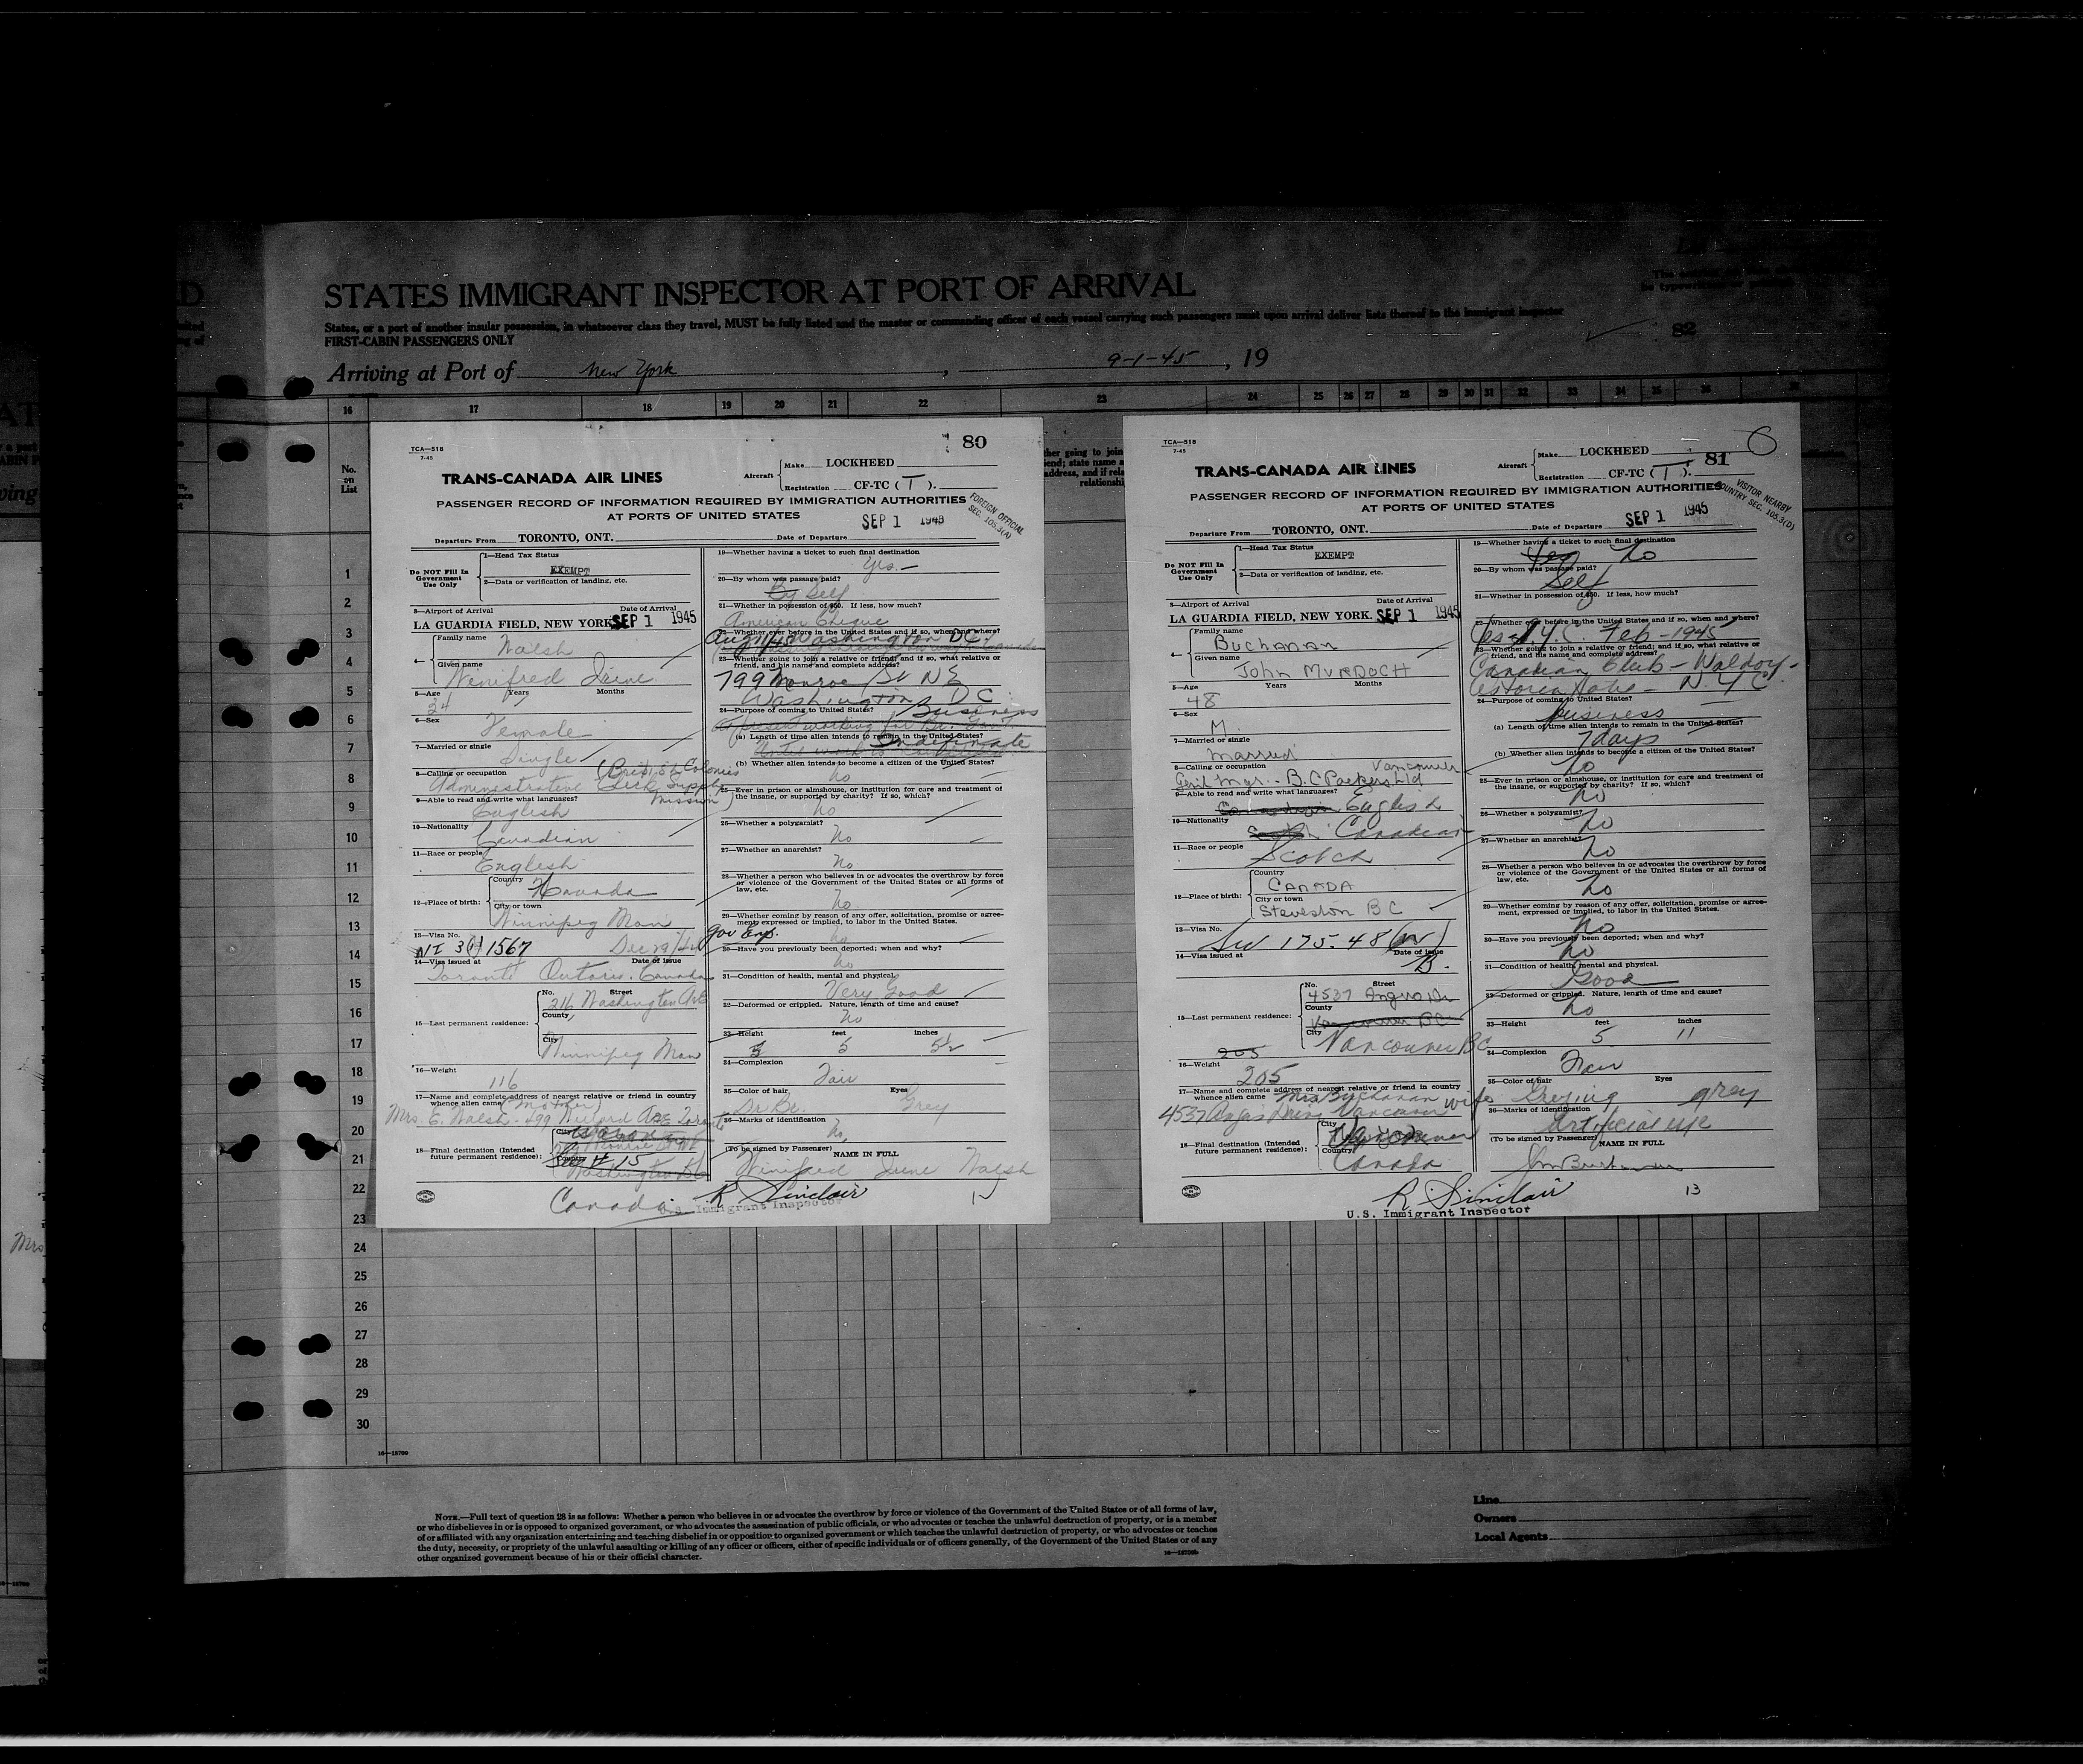 STATES IMMIGRANT INSPECTOR AT PORT OF ARRIVAL
States, or a port of another insular possession, in whatsoever class they travel, MUST be fully listed and the master or commanding officer of each vessel carrying such passengers must upon arrival deliver lists thereof to the immigrant inspector
FIRST-CABIN PASSENGERS ONLY
82
Arriving at Port of New York, 9-1-45, 19
16 17 18 19 20 21 22 23 24 25 26 27 28 29 30 31 32 33 34 35 36
No. on List
1
2
3
4
5
6
7
8
9
10
11
12
13
14
15
16
17
18
19
20
21
22
23
24
25
26
27
28
29
30
TCA—518
7-45
80
TRANS-CANADA AIR LINES
Aircraft Make LOCKHEED
Registration CF-TC (T).
PASSENGER RECORD OF INFORMATION REQUIRED BY IMMIGRATION AUTHORITIES
AT PORTS OF UNITED STATES
FOREIGN OFFICIAL
SEC. 105.3(A)
Departure From TORONTO, ONT. Date of Departure SEP 1 1945
Do NOT Fill In Government Use Only
1—Head Tax Status
EXEMPT
2—Data or verification of landing, etc.
3—Airport of Arrival Date of Arrival
LA GUARDIA FIELD, NEW YORK. SEP 1 1945
4— Family name Walsh
Given name Winifred Irene
5—Age Years Months
24
6—Sex Female
7—Married or single
Single
8—Calling or occupation (British Colonies
Administrative Clerk Supply
Mission)
9—Able to read and write what languages?
English
10—Nationality
Canadian
11—Race or people
English
12—Place of birth: Country Canada
City or town
Winnipeg Man
13—Visa No.
NI 3(1) 1567 Dec 29/44
14—Visa issued at Date of issue
Toronto Ontario, Canada
15—Last permanent residence: No. Street
216 Washington Ave
County
City
Winnipeg Man
16—Weight
116
17—Name and complete address of nearest relative or friend in country
whence alien came (Mother)
Mrs. E. Walsh - 299 Ave Toronto
18—Final destination (Intended future permanent residence): City
Country
Washington DC
Canada
19—Whether having a ticket to such final destination
Yes.—
20—By whom was passage paid?
By Self
21—Whether in possession of $50. If less, how much?
American Cheque
22—Whether ever before in the United States and if so, when and where?
Aug 21/45 Washington DC.
23—Whether going to join a relative or friend; and if so, what relative or
friend, and his name and complete address?
799 Monroe St NE
Washington DC
24—Purpose of coming to United States? Business
(a) Length of time alien intends to remain in the United States?
Indefinate
(b) Whether alien intends to become a citizen of the United States?
no
25—Ever in prison or almshouse, or institution for care and treatment of
the insane, or supported by charity? If so, which?
no
26—Whether a polygamist?
No
27—Whether an anarchist?
No
28—Whether a person who believes in or advocates the overthrow by force
or violence of the Government of the United States or all forms of
law, etc.
No.
29—Whether coming by reason of any offer, solicitation, promise or agree-
ment, expressed or implied, to labor in the United States.
Gov Emp. no
30—Have you previously been deported; when and why?
no
31—Condition of health, mental and physical.
Very Good
32—Deformed or crippled. Nature, length of time and cause?
No
33—Height feet inches
5 5½
34—Complexion
Fair
35—Color of hair Eyes
Dr Br. Grey
36—Marks of identification
No
(To be signed by Passenger) NAME IN FULL
Winifred Irene Walsh
R Sinclair
U.S. Immigrant Inspector
TCA—518
7-45
81
TRANS-CANADA AIR LINES
Aircraft Make LOCKHEED
Registration CF-TC (T).
PASSENGER RECORD OF INFORMATION REQUIRED BY IMMIGRATION AUTHORITIES
AT PORTS OF UNITED STATES
VISITOR NEARBY
COUNTRY SEC. 105.3(D)
Departure From TORONTO, ONT. Date of Departure SEP 1 1945
Do NOT Fill In Government Use Only
1—Head Tax Status
EXEMPT
2—Data or verification of landing, etc.
3—Airport of Arrival Date of Arrival
LA GUARDIA FIELD, NEW YORK. SEP 1 1945
4— Family name
Buchanan
Given name
John MURDOCH
5—Age Years Months
48
6—Sex
M
7—Married or single
Married
8—Calling or occupation Vancouver
Genl Mgr. - B.C Packers Ltd
9—Able to read and write what languages?
English
10—Nationality
Canadian
11—Race or people
Scotch
12—Place of birth: Country
CANADA
City or town
Steveston B C
13—Visa No.
175.48 (W)
14—Visa issued at Date of issue
B.
15—Last permanent residence: No. Street
4537 Angus Dr
County
Vancouver BC
City
Vancouver BC
205
16—Weight
205
17—Name and complete address of nearest relative or friend in country
whence alien came Mrs Buchanan wife
4537 Angus Drive Vancouver
18—Final destination (Intended future permanent residence): City
Vancouver
Country
Canada
19—Whether having a ticket to such final destination
Yes No
20—By whom was passage paid?
Self
21—Whether in possession of $50. If less, how much?
22—Whether ever before in the United States and if so, when and where?
Yes N.Y.C. Feb - 1945
23—Whether going to join a relative or friend; and if so, what relative or
friend, and his name and complete address?
Canadian Club - Waldorf-
Astoria Hotel - N.Y C
24—Purpose of coming to United States?
Business
(a) Length of time alien intends to remain in the United States?
7 days
(b) Whether alien intends to become a citizen of the United States?
No
25—Ever in prison or almshouse, or institution for care and treatment of
the insane, or supported by charity? If so, which?
No
26—Whether a polygamist?
No
27—Whether an anarchist?
No
28—Whether a person who believes in or advocates the overthrow by force
or violence of the Government of the United States or all forms of
law, etc.
No
29—Whether coming by reason of any offer, solicitation, promise or agree-
ment, expressed or implied, to labor in the United States.
No
30—Have you previously been deported; when and why?
No
31—Condition of health, mental and physical.
Good
32—Deformed or crippled. Nature, length of time and cause?
No
33—Height feet inches
5 11
34—Complexion
Fair
35—Color of hair Eyes
Greying grey
36—Marks of identification
Artificial eye
(To be signed by Passenger) NAME IN FULL
JM Buchanan
R. Sinclair 13
U.S. Immigrant Inspector
16—18700
NOTE.—Full text of question 28 is as follows: Whether a person who believes in or advocates the overthrow by force or violence of the Government of the United States or of all forms of law,
or who disbelieves in or is opposed to organized government, or who advocates the assassination of public officials, or who advocates or teaches the unlawful destruction of property, or is a member
of or affiliated with any organization entertaining and teaching disbelief in or opposition to organized government or which teaches the unlawful destruction of property, or who advocates or teaches
the duty, necessity, or propriety of the unlawful assaulting or killing of any officer or officers, either of specific individuals or of officers generally, of the Government of the United States or of any
other organized government because of his or their official character.
Line
Owners
Local Agents